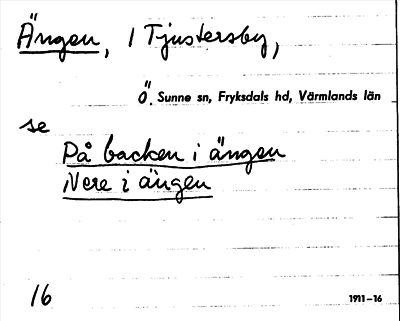 Ängen, 1 Tjustersby,
Ö. Sunne sn, Fryksdals hd, Värmlands län
se
På backen i ängen
Nere i ängen
16
1911-16